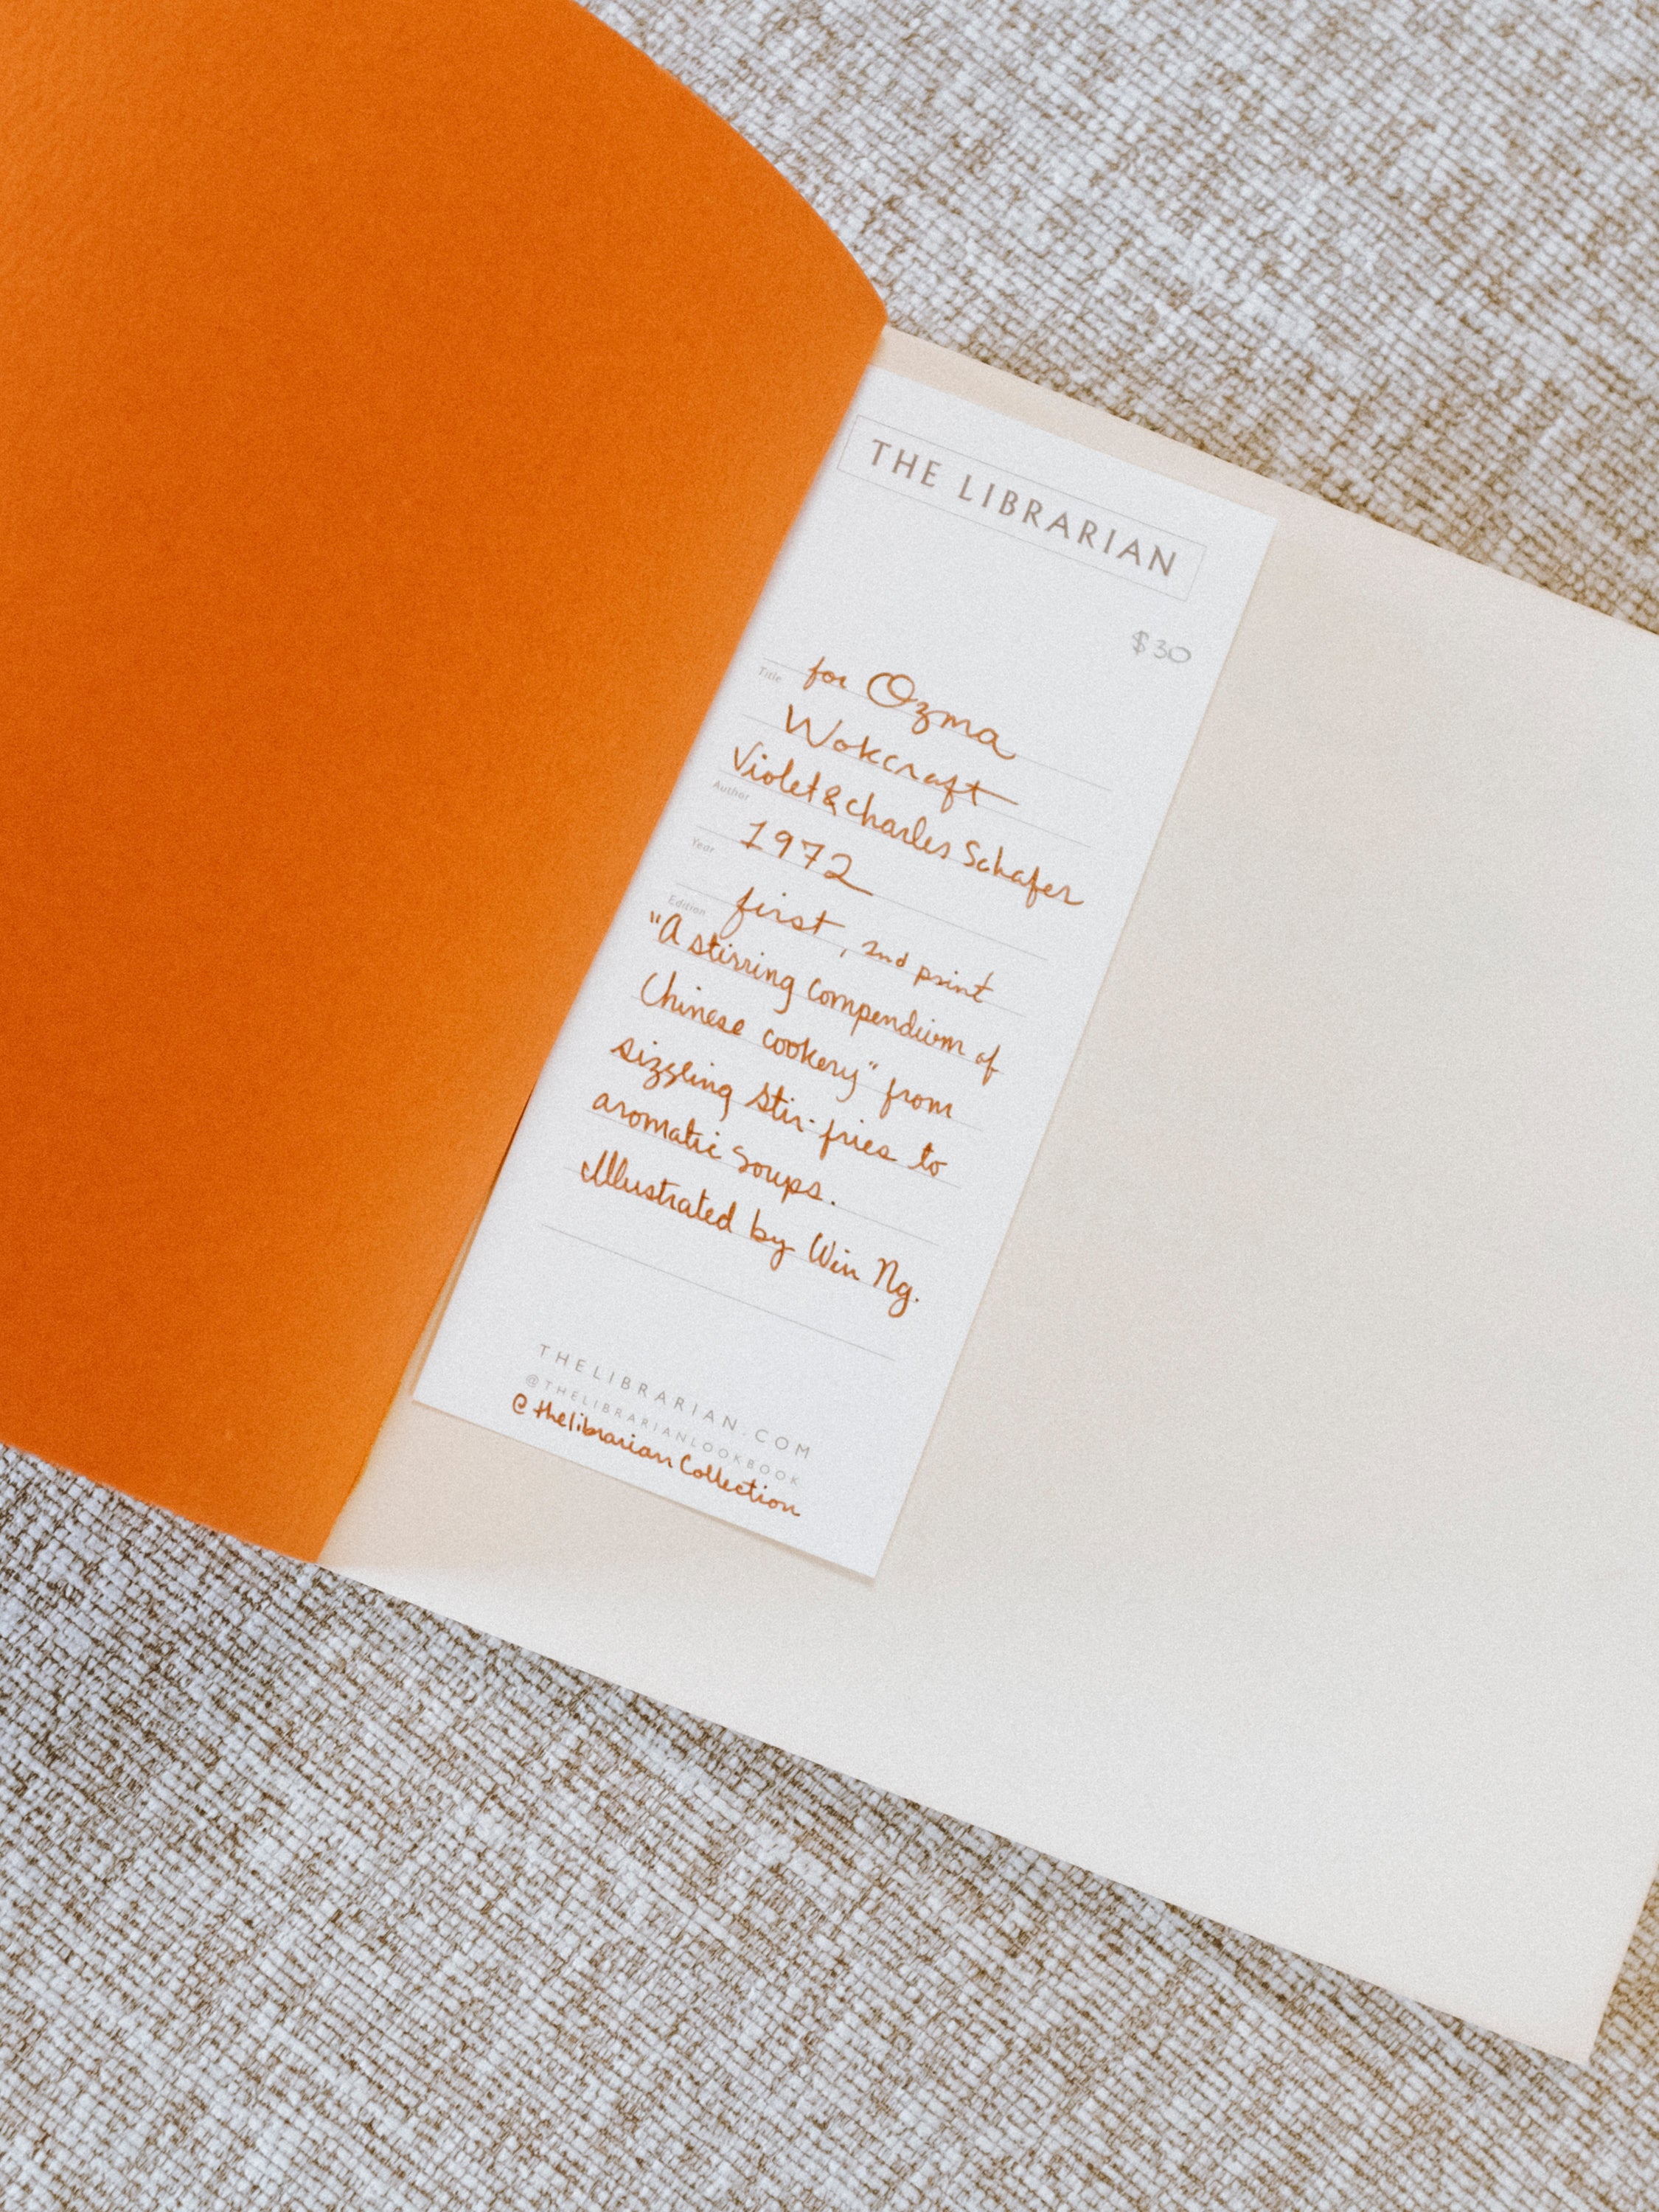 THE LIBRARIAN
$30
Title for Ozma
Wokcraft
Author Violet & Charles Schafer
Year 1972
Edition first, 2nd print
"A stirring compendium of
Chinese cookery" from
sizzling stir-fries to
aromatic soups.
Illustrated by Win Ng.
THELIBRARIAN.COM
@THELIBRARIANLOOKBOOK
@thelibrarianCollection